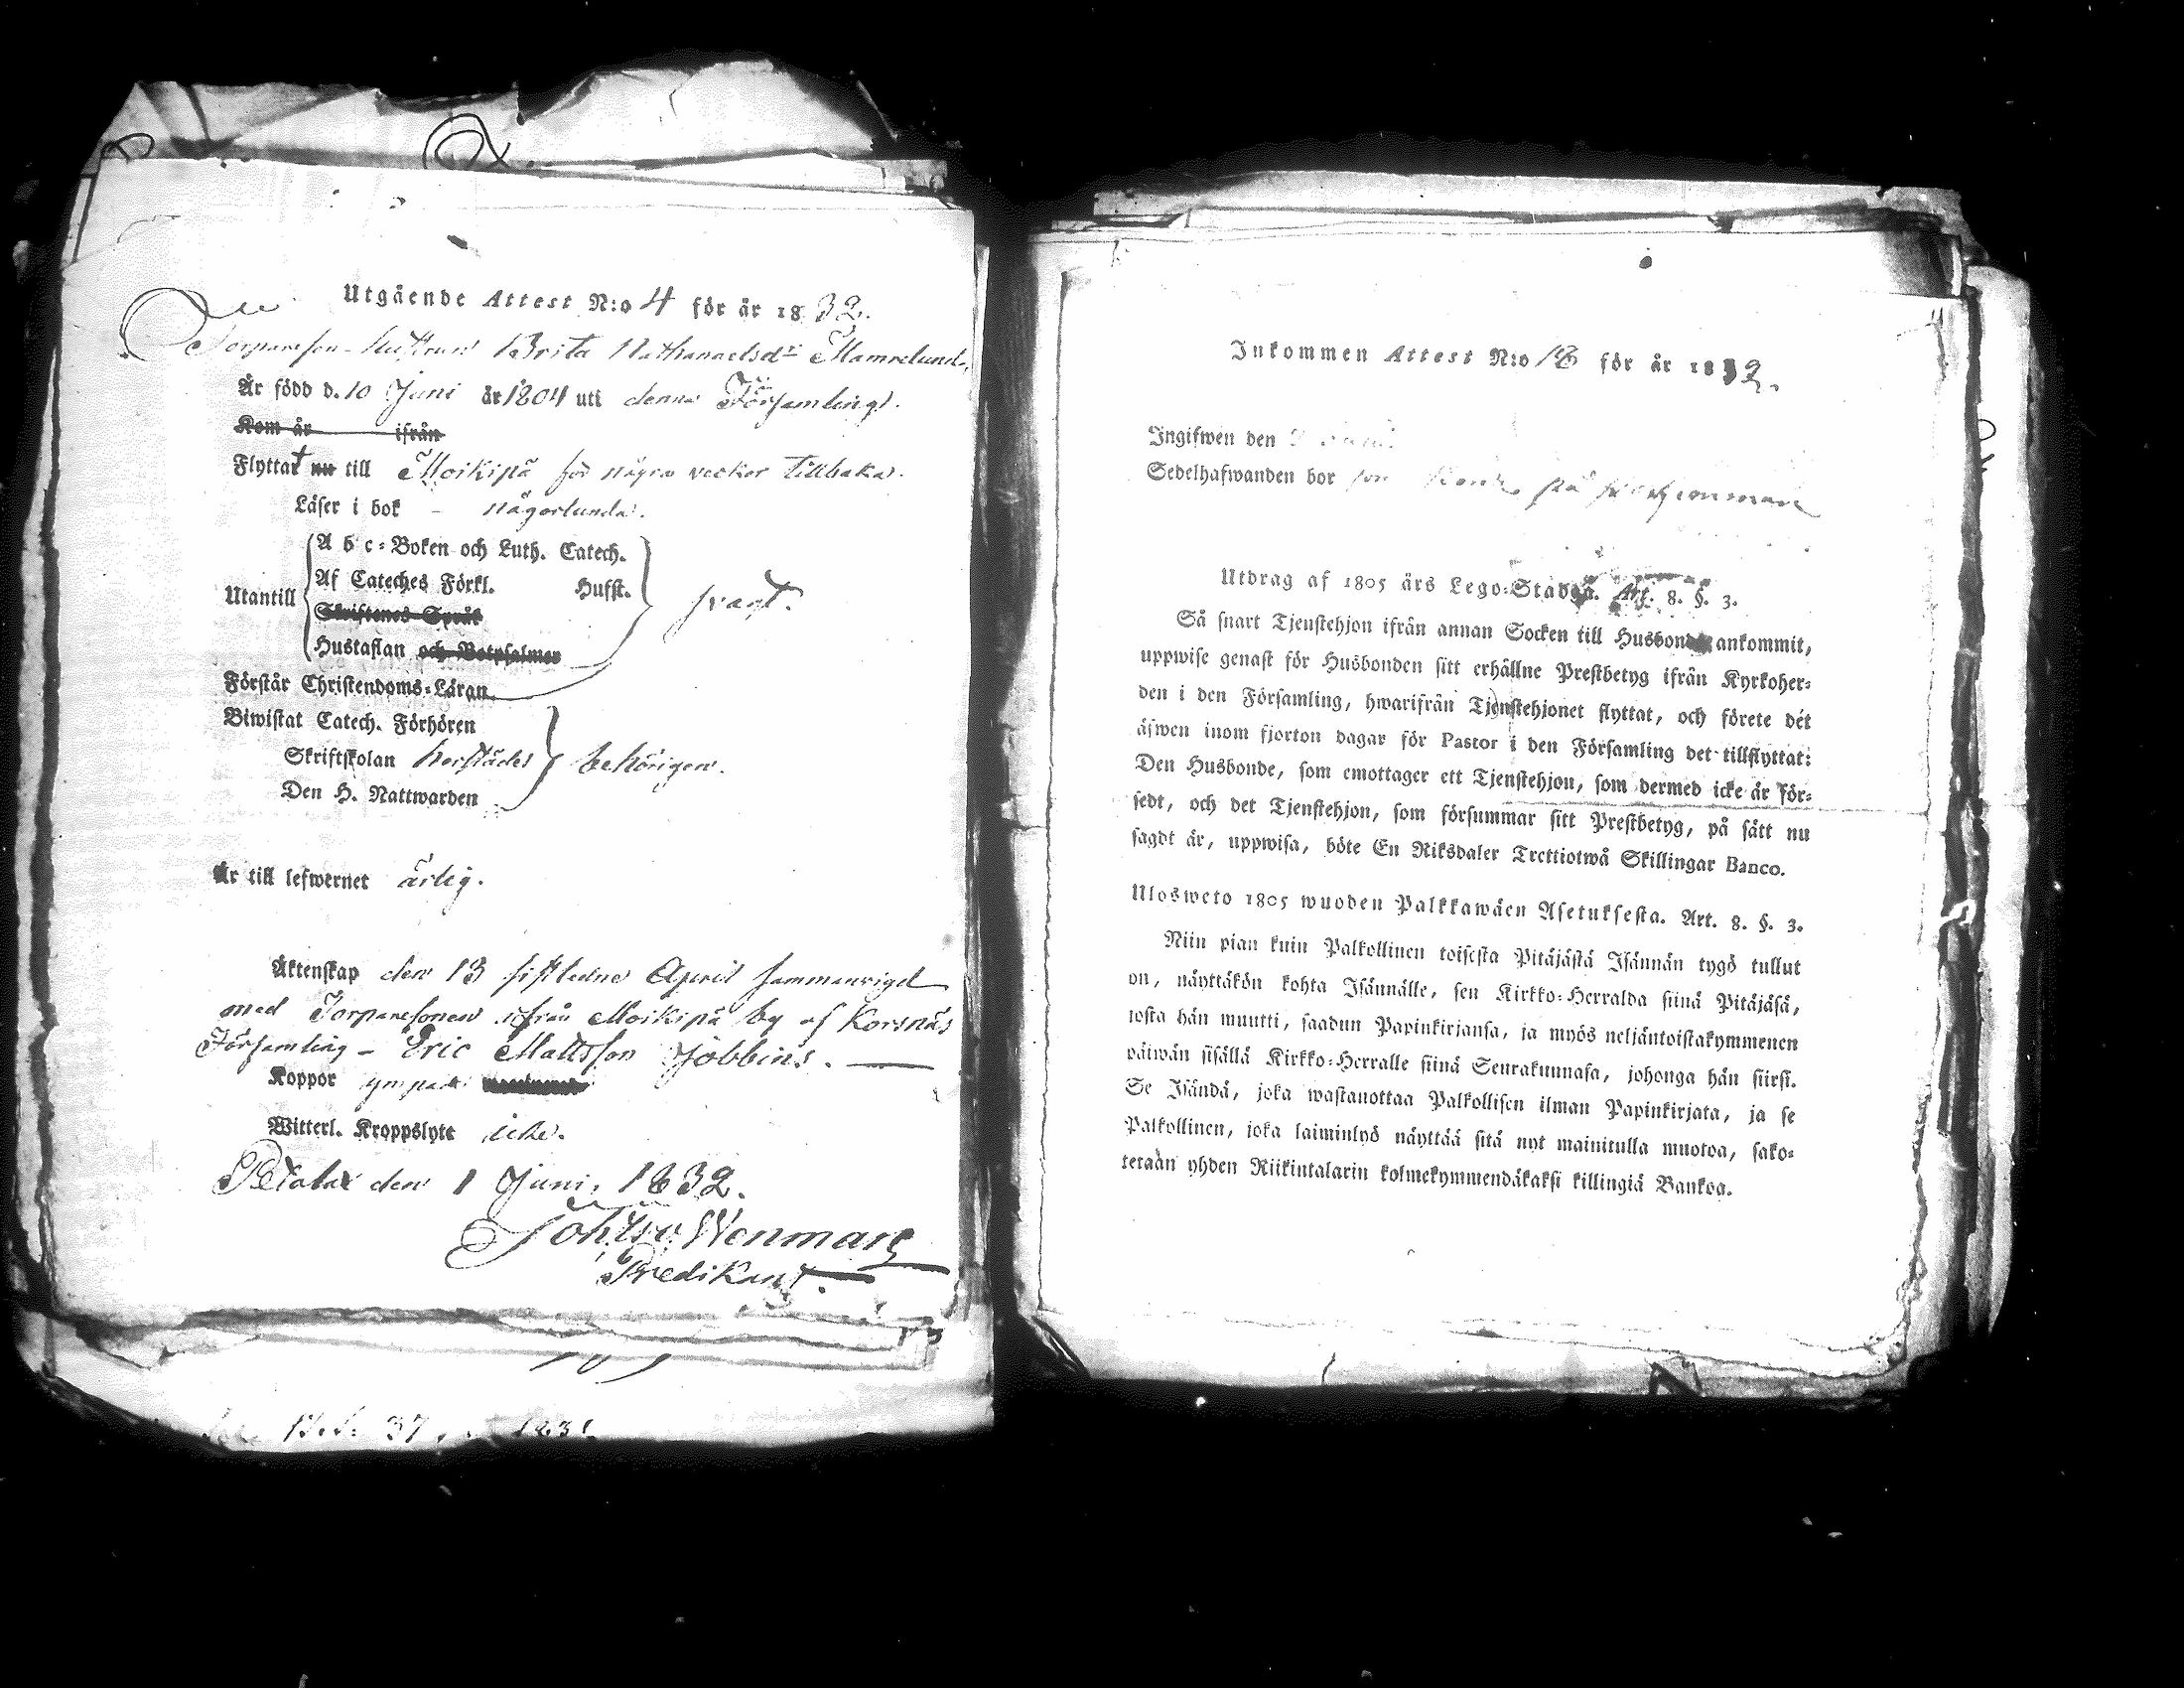 Utgående Attest N:o 4 för år 1832.
Torpareson-hustrun Brita Nathanaelsdr Mamrelund,
Är född d. 10 Juni år 1804 uti denna Församling.
Kom år ifrån
Flyttat nu till Moikipä för några veckor tillbaka.
Läser i bok - någorlunda.
A b c-Boken och Luth. Catech.
Af Cateches Förkl. Husst.
Utantill
Skriftenes Språk
svagt.
Hustaflan och Botpsalmer
Förstår Christendoms-Läran
Biwistat Catech. Förhören
Skriftskolan härstädes behörigen.
Den H. Nattwarden
Är till lefwernet ärlig.
Äktenskap den 13 sistledne April sammanvigd
med Torparesonen ifrån Moikipä by af Korsnäs
Församling - Eric Mattsson Jobbins.
Koppor ympade
Witterl. Kroppslyte icke.
Petalax den 1 Juni, 1832.
Joh: Wenman
Predikant.
37 1831
Inkommen Attest N:o 18 för år 1832.
Ingifwen den
Sedelhafwanden bor på
Utdrag af 1805 års Lego-Stadga. Art. 8. §. 3.
Så snart Tjenstehjon ifrån annan Socken till Husbonde ankommit,
uppwise genast för Husbonden sitt erhållne Prestbetyg ifrån Kyrkoher-
den i den Församling, hwarifrån Tjenstehjonet flyttat, och förete det
äfwen inom fjorton dagar för Pastor i den Församling det tillflyttat:
Den Husbonde, som emottager ett Tjenstehjon, som dermed icke är för-
sedt, och det Tjenstehjon, som försummar sitt Prestbetyg, på sätt nu
sagdt är, uppwisa, böte En Riksdaler Trettiotwå Skillingar Banco.
Ulosweto 1805 wuoden Palkkawäen Asetuksesta. Art. 8. §. 3.
Niin pian kuin Palkollinen toisesta Pitäjästä Isännän tygö tullut
on, näyttäkön kohta Isännälle, sen Kirkko-Herralda siinä Pitäjäsä,
josta hän muutti, saadun Papinkirjansa, ja myös neljäntoistakymmenen
päiwän sisällä Kirkko-Herralle siinä Seurakunnasa, johonga hän siirsi.
Se Isändä, joka wastanottaa Palkollisen ilman Papinkirjata, ja se
Palkollinen, joka laiminlyö näyttää sitä nyt mainitulla muotoa, sako-
tetaan yhden Riikintalarin kolmekymmendäkaksi killingiä Bankoa.